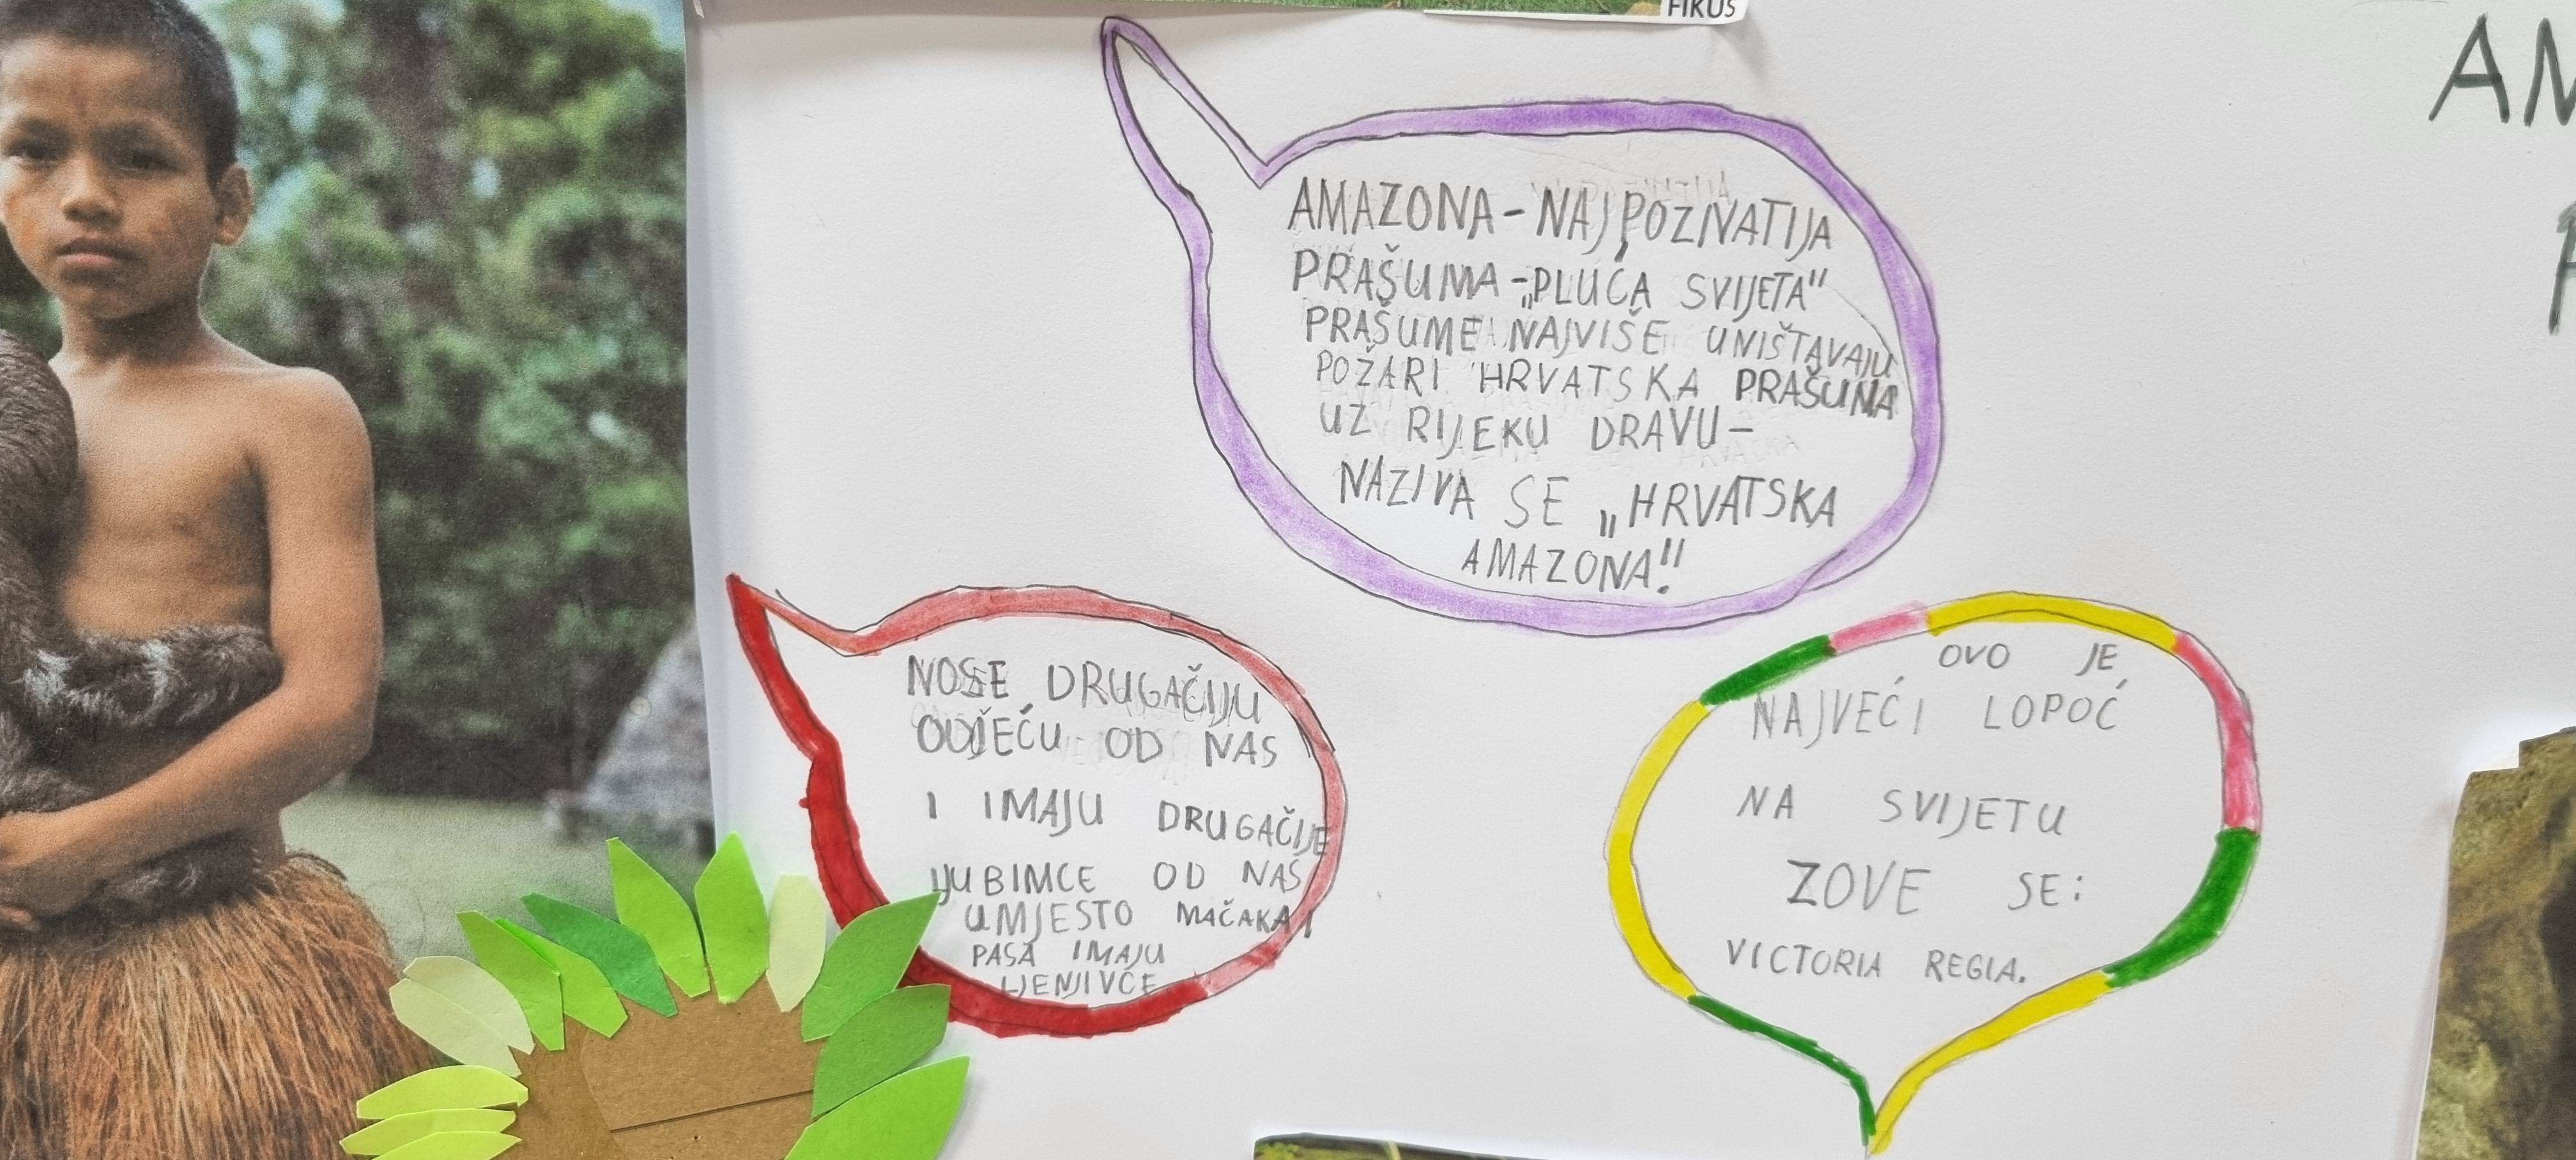 FIKUS
AMAZONA-NAJPOZNATIJA
PRAŠUMA-„PLUĆA SVIJETA"
PRAŠUME NAJVIŠE UNIŠTAVAJU
POŽARI HRVATSKA PRAŠUMA
UZ RIJEKU DRAVU-
NAZIVA SE „HRVATSKA
AMAZONA!"
NOSE DRUGAČIJU
ODJEĆU OD NAS
I IMAJU DRUGAČIJE
LJUBIMCE OD NAS
UMJESTO MAČAKA I
PASA IMAJU
LJENJIVCE
OVO JE
NAJVEĆI LOPOĆ
NA SVIJETU
ZOVE SE:
VICTORIA REGIA.
AM